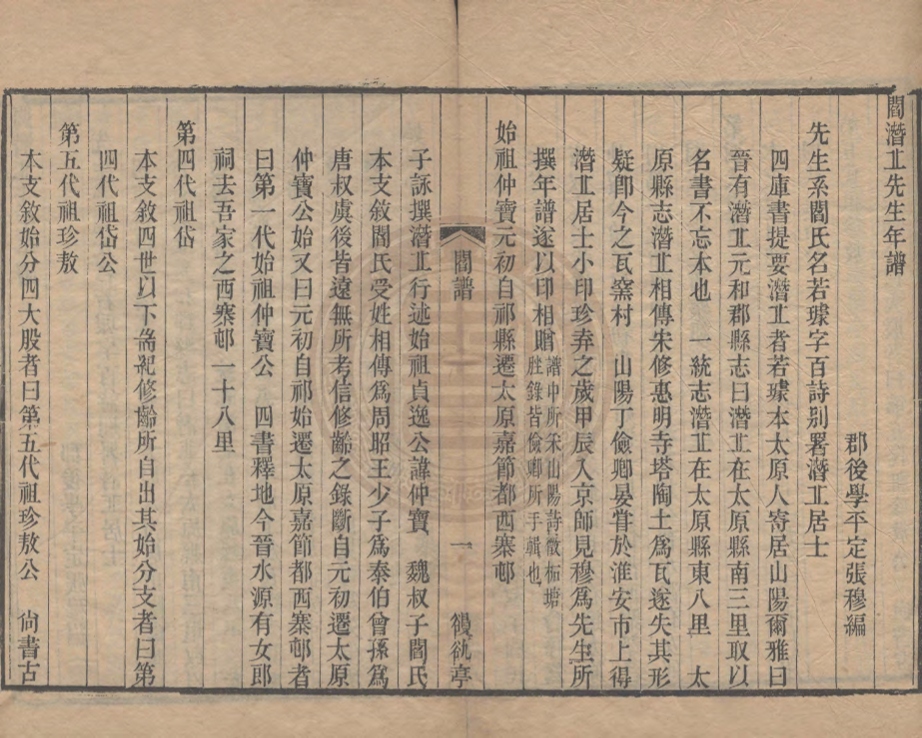 閻潛丠先生年譜
郡後學平定張穆編
先生系閻氏名若璩字百詩别署潛丠居士
四庫書提要潛丠者若璩本太原人寄居山陽爾雅曰
晉有潛丠元和郡縣志曰潛丠在太原縣南三里取以
名書不忘本也 一統志潛丠在太原縣東八里 太
原縣志潛丠相傳宋修惠明寺塔陶土爲瓦遂失其形
疑卽今之瓦窯村 山陽丁儉卿晏嘗於淮安市上得
潛丠居士小印珍弆之歲甲辰入京師見穆爲先生所
撰年譜遂以印相贈譜中所采山陽詩徵柘塘
脞錄皆儉卿所手輯也
始祖仲寶元初自祁縣遷太原嘉節都西寨邨
閻譜 一 䭑𣢾亭
子詠撰潛丠行述始祖貞逸公諱仲寶 魏叔子閻氏
本支敘閻氏受姓相傳爲周昭王少子爲泰伯曾孫爲
唐叔虞後皆遠無所考信修齡之錄斷自元初遷太原
仲寶公始又曰元初自祁始遷太原嘉節都西寨邨者
曰第一代始祖仲寶公 四書釋地今晉水源有女郎
祠去吾家之西寨邨一十八里
第四代祖岱
本支敘四世以下耑紀修齡所自出其始分支者曰第
四代祖岱公
第五代祖珍敖
本支敘始分四大股者曰第五代祖珍敖公 尙書古